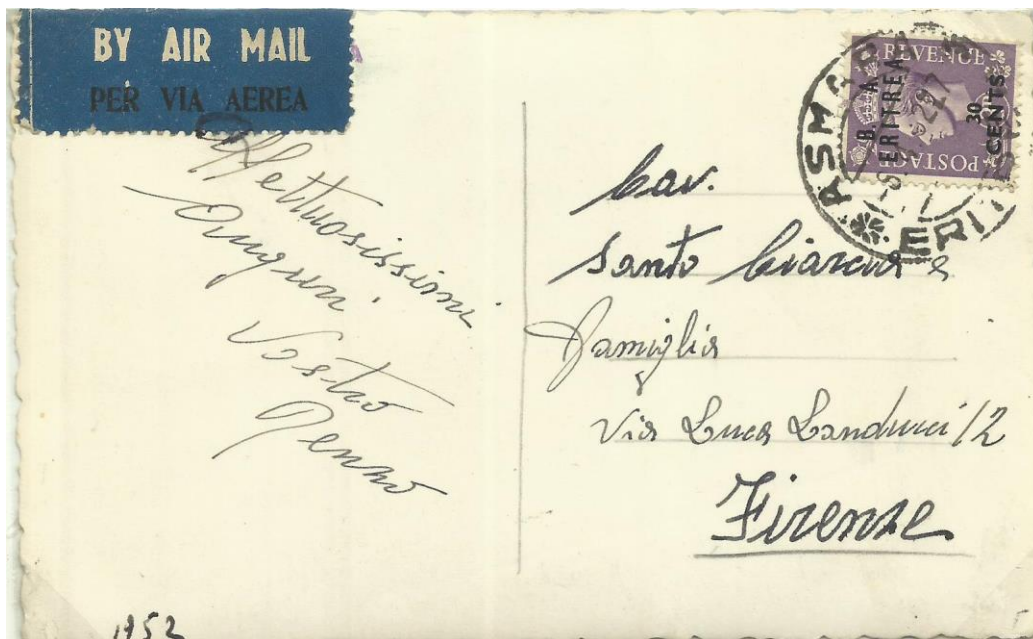 BY AIR MAIL
PER VIA AEREA
Affettuosissimi
Auguri
Vostro
Renzo
1952
REVENUE
B. A.
ERITREA
30
CENTS
POSTAGE
ASMARA
ERIT
Cav.
Santo Ciarcia e
famiglia
Via Luca Landucci 12
Firenze